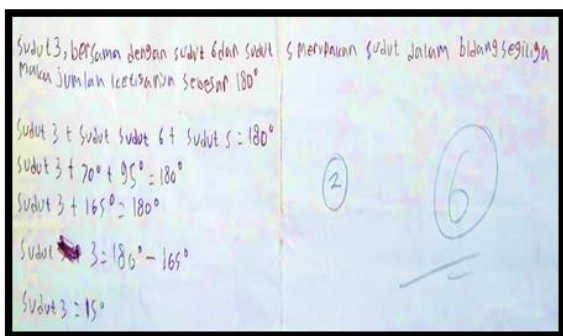 Sudut 3, bersama dengan sudut 6 dan sudut 5 merupakan sudut dalam bidang segitiga
maka jumlah ketiganya sebesar 180°
Sudut 3 + sudut sudut 6 + sudut 5 = 180°
Sudut 3 + 70° + 95° = 180°
Sudut 3 + 165° = 180°
Sudut 3 = 180° - 165°
Sudut 3 = 15°
2
6